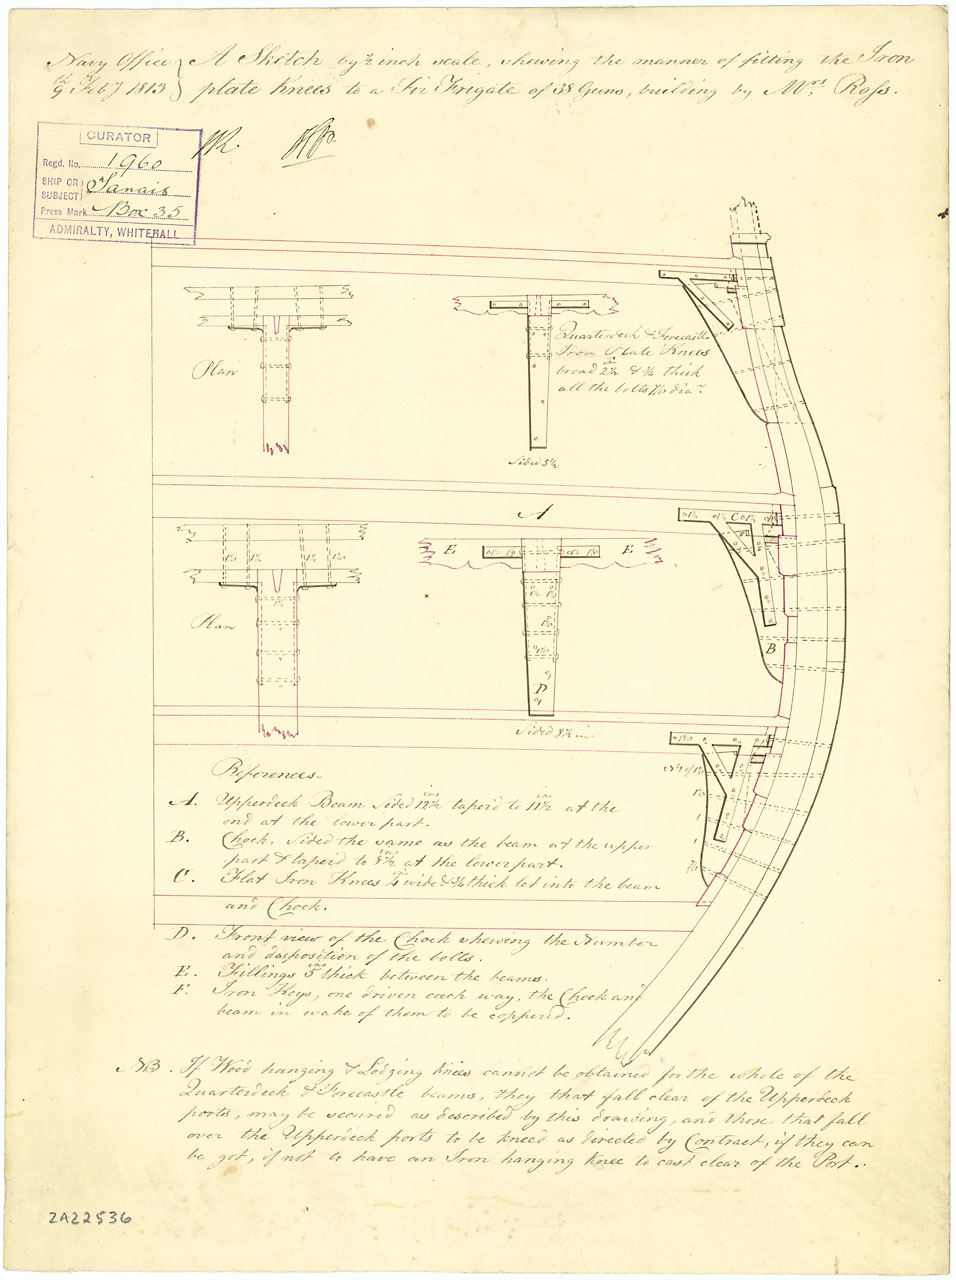 Navy Office } A Sketch by ½ inch scale, shewing the manner of fitting the Iron
9th Feby 1813 } plate Knees to a Fir Frigate of 38 Guns, building by Mrs. Ross.
CURATOR
Regd. No. 1960
SHIP OR SUBJECT } Tanais
Press Mark Box 35
ADMIRALTY, WHITEHALL
Plan
Quarterdeck & Forecastle
Iron Plate Knees
broad 2½ ins & ¾ thick
all the bolts diar.
Sided 5½
A
E E
C
F
Plan
B
D
Sided 8½ in
References
A. Upperdeck Beam sided 12½ ins taper'd to 11½ ins at the
end at the lower part.
B. Chock, sided the same as the beam at the upper
part & taper'd to 8½ ins at the lower part.
C. Flat Iron Knees 4 ins wide & ¾ thick let into the beam
and Chock.
D. Front view of the Chock shewing the Number
and disposition of the bolts.
E. Fillings 5 ins thick between the beams.
F. Iron Keys, one driven each way, the Chock and
beam in wake of them to be coppered.
NB. If Wood hanging & Lodging knees cannot be obtained for the whole of the
Quarterdeck & Forecastle beams, they that fall clear of the Upperdeck
ports, may be secured as described by this drawing, and those that fall
over the Upperdeck ports to be kneed as directed by Contract, if they can
be got, if not to have an Iron hanging Knee to cast clear of the Port.
ZAZ2536